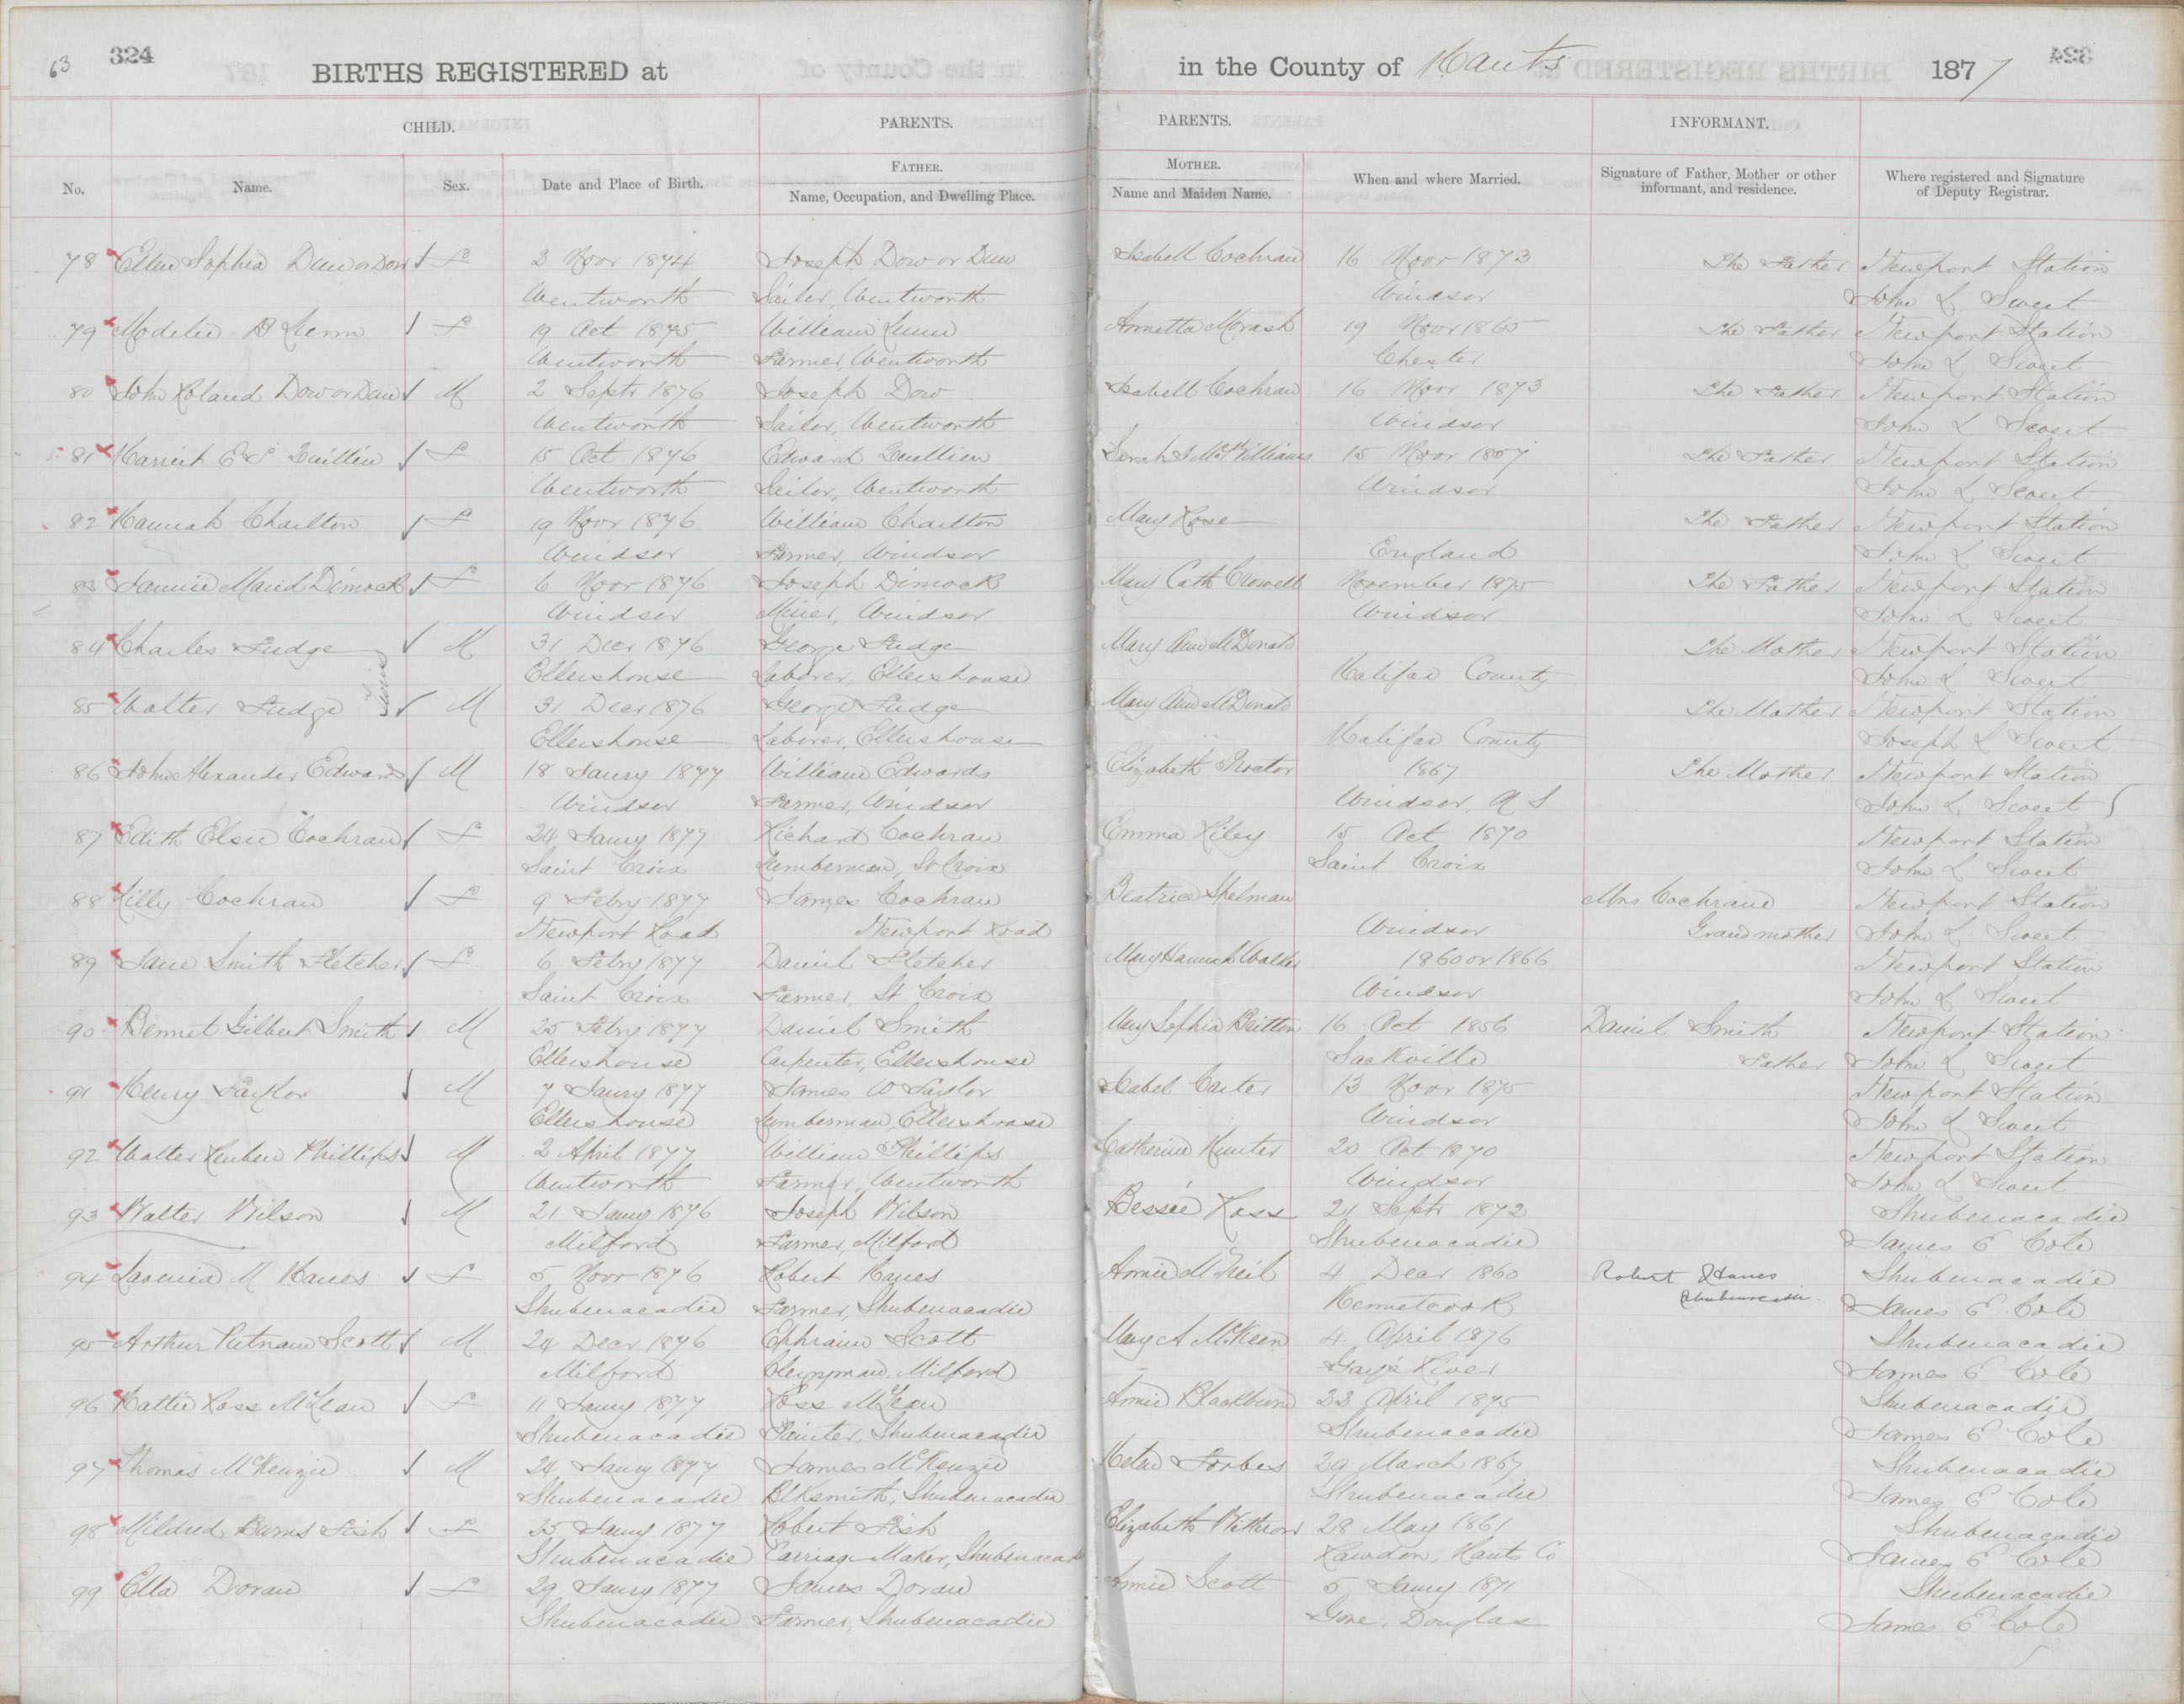 63 324
BIRTHS REGISTERED at
in the County of Hants 1877
CHILD. PARENTS. PARENTS. INFORMANT.
FATHER. MOTHER.
No. Name. Sex. Date and Place of Birth. Name, Occupation, and Dwelling Place. Name and Maiden Name. When and where Married. Signature of Father, Mother or other informant, and residence. Where registered and Signature of Deputy Registrar.
78 Ellen Sophia Dew or Dow F 3 Novr 1874 Joseph Dow or Dew Isabell Cochran 16 Novr 1873 The Father Newport Station
Wentworth Sailor, Wentworth Windsor John L Sweet
79 Modelie B Lunn F 19 Oct 1875 William Lunn Annetta Morash 19 Novr 1865 The Father Newport Station
Wentworth Farmer, Wentworth Chester John L Sweet
80 John Roland Dow or Dew M 2 Septr 1876 Joseph Dow Isabell Cochran 16 Novr 1873 The Father Newport Station
Wentworth Sailor, Wentworth Windsor John L Sweet
81 Harriet E S F 15 Oct 1876 Edward Sarah J McWilliams 15 Novr The Father Newport Station
Wentworth Sailor, Wentworth Windsor John L Sweet
82 Hannah Charlton F 19 Novr 1876 William Charlton Mary Rose The Father Newport Station
Windsor Farmer, Windsor England John L Sweet
83 Fannie Maud Dimock F 6 Novr 1876 Joseph Dimock Mary Cath Crowell November 1875 The Father Newport Station
Windsor Miner, Windsor Windsor John L Sweet
84 Charles Fudge M 31 Decr 1876 George Fudge Mary Ann McDonald The Mother Newport Station
Twins Ellershouse Laborer, Ellershouse Halifax County John L Sweet
85 Walter Fudge M 31 Decr 1876 George Fudge Mary Ann McDonald The Mother Newport Station
Ellershouse Laborer, Ellershouse Halifax County Joseph L Sweet
86 John Alexander Edwards M 18 Jany 1877 William Edwards Elizabeth Proctor 1867 The Mother Newport Station
Windsor Farmer, Windsor Windsor, N S John L Sweet
87 Edith Elsie Cochran F 24 Jany 1877 Richard Cochran Emma Riley 15 Oct 1870 Newport Station
Saint Croix Lumberman, St Croix Saint Croix John L Sweet
88 Lilly Cochran F 9 Febry 1877 James Cochran Beatrice Shelman Mrs Cochrane Newport Station
Newport Road Newport Road Windsor Grandmother John L Sweet
89 Jane Smith Fletcher F 6 Febry 1877 Daniel Fletcher Mary Hannah Walker 1860 or 1866 Newport Station
Saint Croix Farmer, St Croix Windsor John L Sweet
90 Bennet Gilbert Smith M 25 Febry 1877 Daniel Smith Mary Sophia Britton 16 Oct 1856 Daniel Smith Newport Station
Ellershouse Carpenter, Ellershouse Sackville Father John L Sweet
91 Henry Taylor M 7 Jany 1877 James W Taylor Isabel Carter 13 Novr 1875 Newport Station
Ellershouse Lumberman, Ellershouse Windsor John L Sweet
92 Walter Reuben Phillips M 2 April 1877 William Phillips Catherine Hunter 20 Oct 1870 Newport Station
Wentworth Farmer, Wentworth Windsor John L Sweet
93 Walter Wilson M 21 Jany 1876 Joseph Wilson Bessie Ross 21 Septr 1872 Shubenacadie
Milford Farmer, Milford Shubenacadie James E Cole
94 Lavenia M Hanes F 5 Novr 1876 Robert Hanes Annie McNeil 4 Decr 1860 Robert Hanes Shubenacadie
Shubenacadie Farmer, Shubenacadie Kennetcook Shubenacadie James E Cole
95 Arthur Putnam Scott M 24 Decr 1876 Ephraim Scott Mary A McKeen 4 April 1876 Shubenacadie
Milford Clergyman, Milford Gay's River James E Cole
96 Hattie Ross McLean F 11 Jany 1877 Ross McLean Annie Blackburn 23 April 1875 Shubenacadie
Shubenacadie Painter, Shubenacadie Shubenacadie James E Cole
97 Thomas McKenzie M 24 Jany 1877 James McKenzie Helen Forbes 29 March 1867 Shubenacadie
Shubenacadie Blksmith, Shubenacadie Shubenacadie James E Cole
98 Mildred Burns Fish F 25 Jany 1877 Robert Fish Elizabeth Withrow 28 May 1861 Shubenacadie
Shubenacadie Carriage Maker, Shubenacad Rawdon, Hants Co James E Cole
99 Ella Doran F 29 Jany 1877 James Doran Annie Scott 5 Jany 1871 Shubenacadie
Shubenacadie Farmer, Shubenacadie Gore, Douglas James E Cole